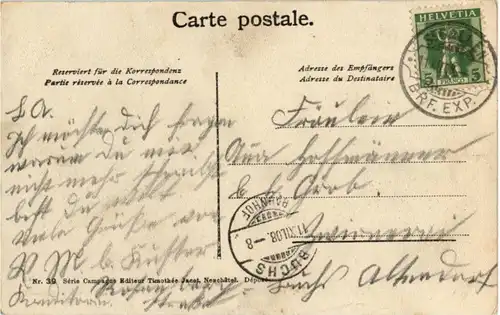 Carte postale.
HELVETIA
5 FRANCO 5
BRF. EXP.
Reserviert für die Korrespondenz
Partie réservée à la Correspondance
Adresse des Empfängers
Adresse du Destinataire
L A.
Ich möchte dich fragen
warum du mir
nicht mehr schreibst
bist du
Viele Grüße von
M b. Küster
Konditorei
Fräulein
Rosa Hoffmänner
b. Grob
Zwirnerei
Buchs Altendorf
BAHNHOF
11.XII.08.–8
BUCHS
Nr. 39 Série Campagne Editeur Timothée Jacot, Neuchâtel. Déposé